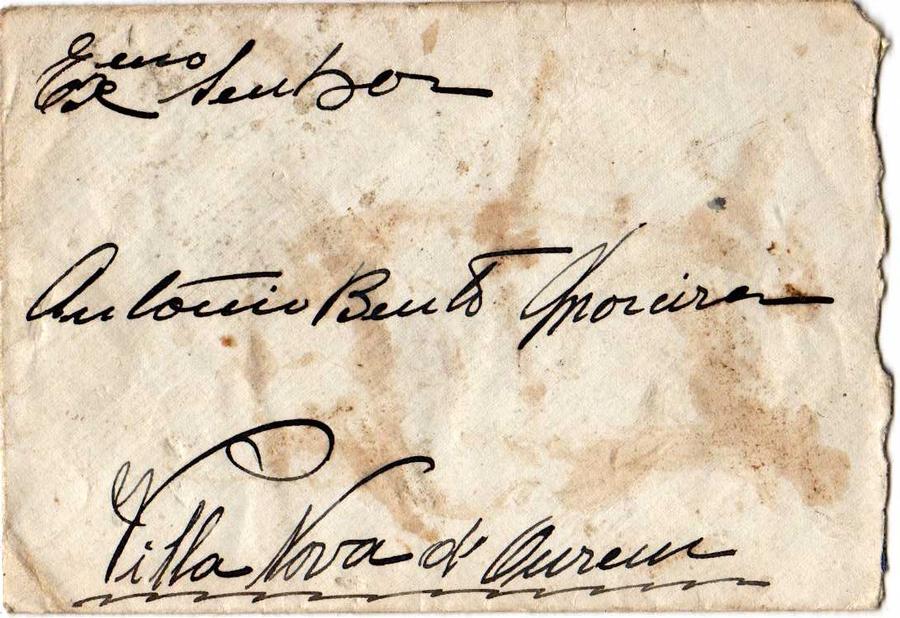 Exmo Senhor
Antonio Bento Moreira
Villa Nova d'Ourem